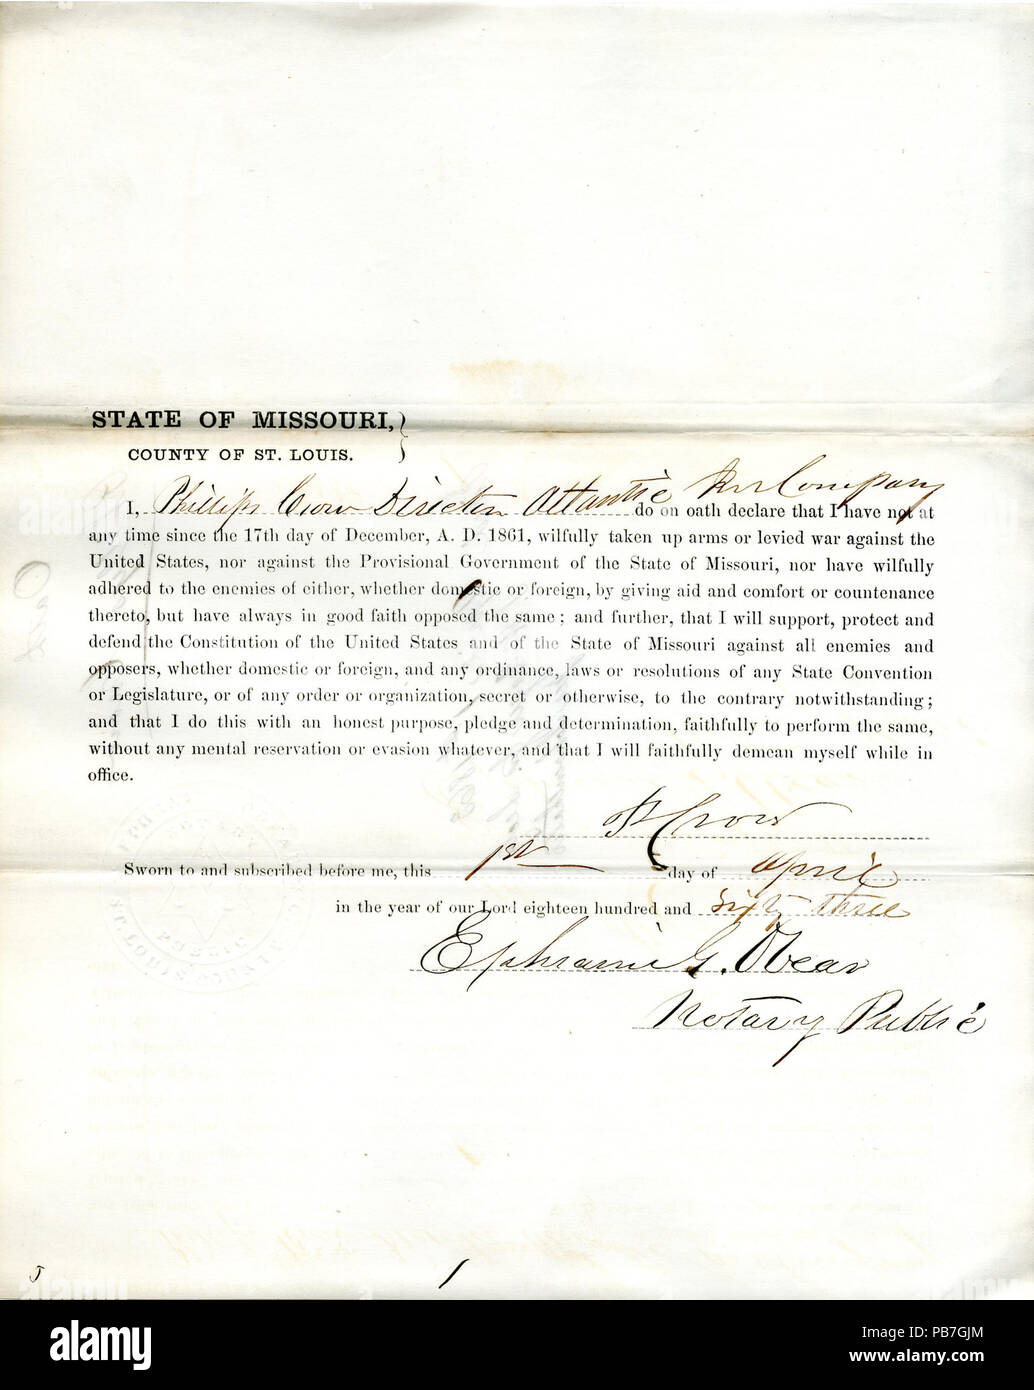 STATE OF MISSOURI,
COUNTY OF ST. LOUIS.
I, Phillips Crow Director Atlantic Company do on oath declare that I have not at
any time since the 17th day of December, A. D. 1861, wilfully taken up arms or levied war against the
United States, nor against the Provisional Government of the State of Missouri, nor have wilfully
adhered to the enemies of either, whether domestic or foreign, by giving aid and comfort or countenance
thereto, but have always in good faith opposed the same; and further, that I will support, protect and
defend the Constitution of the United States and of the State of Missouri against all enemies and
opposers, whether domestic or foreign, and any ordinance, laws or resolutions of any State Convention
or Legislature, or of any order or organization, secret or otherwise, to the contrary notwithstanding;
and that I do this with an honest purpose, pledge and determination, faithfully to perform the same,
without any mental reservation or evasion whatever, and that I will faithfully demean myself while in
office.
P Crow
Sworn to and subscribed before me, this 1st day of April
in the year of our Lord eighteen hundred and sixty three
Ephraim G. Obear
Notary Public
alamy
Image ID: PB7GJM
www.alamy.com